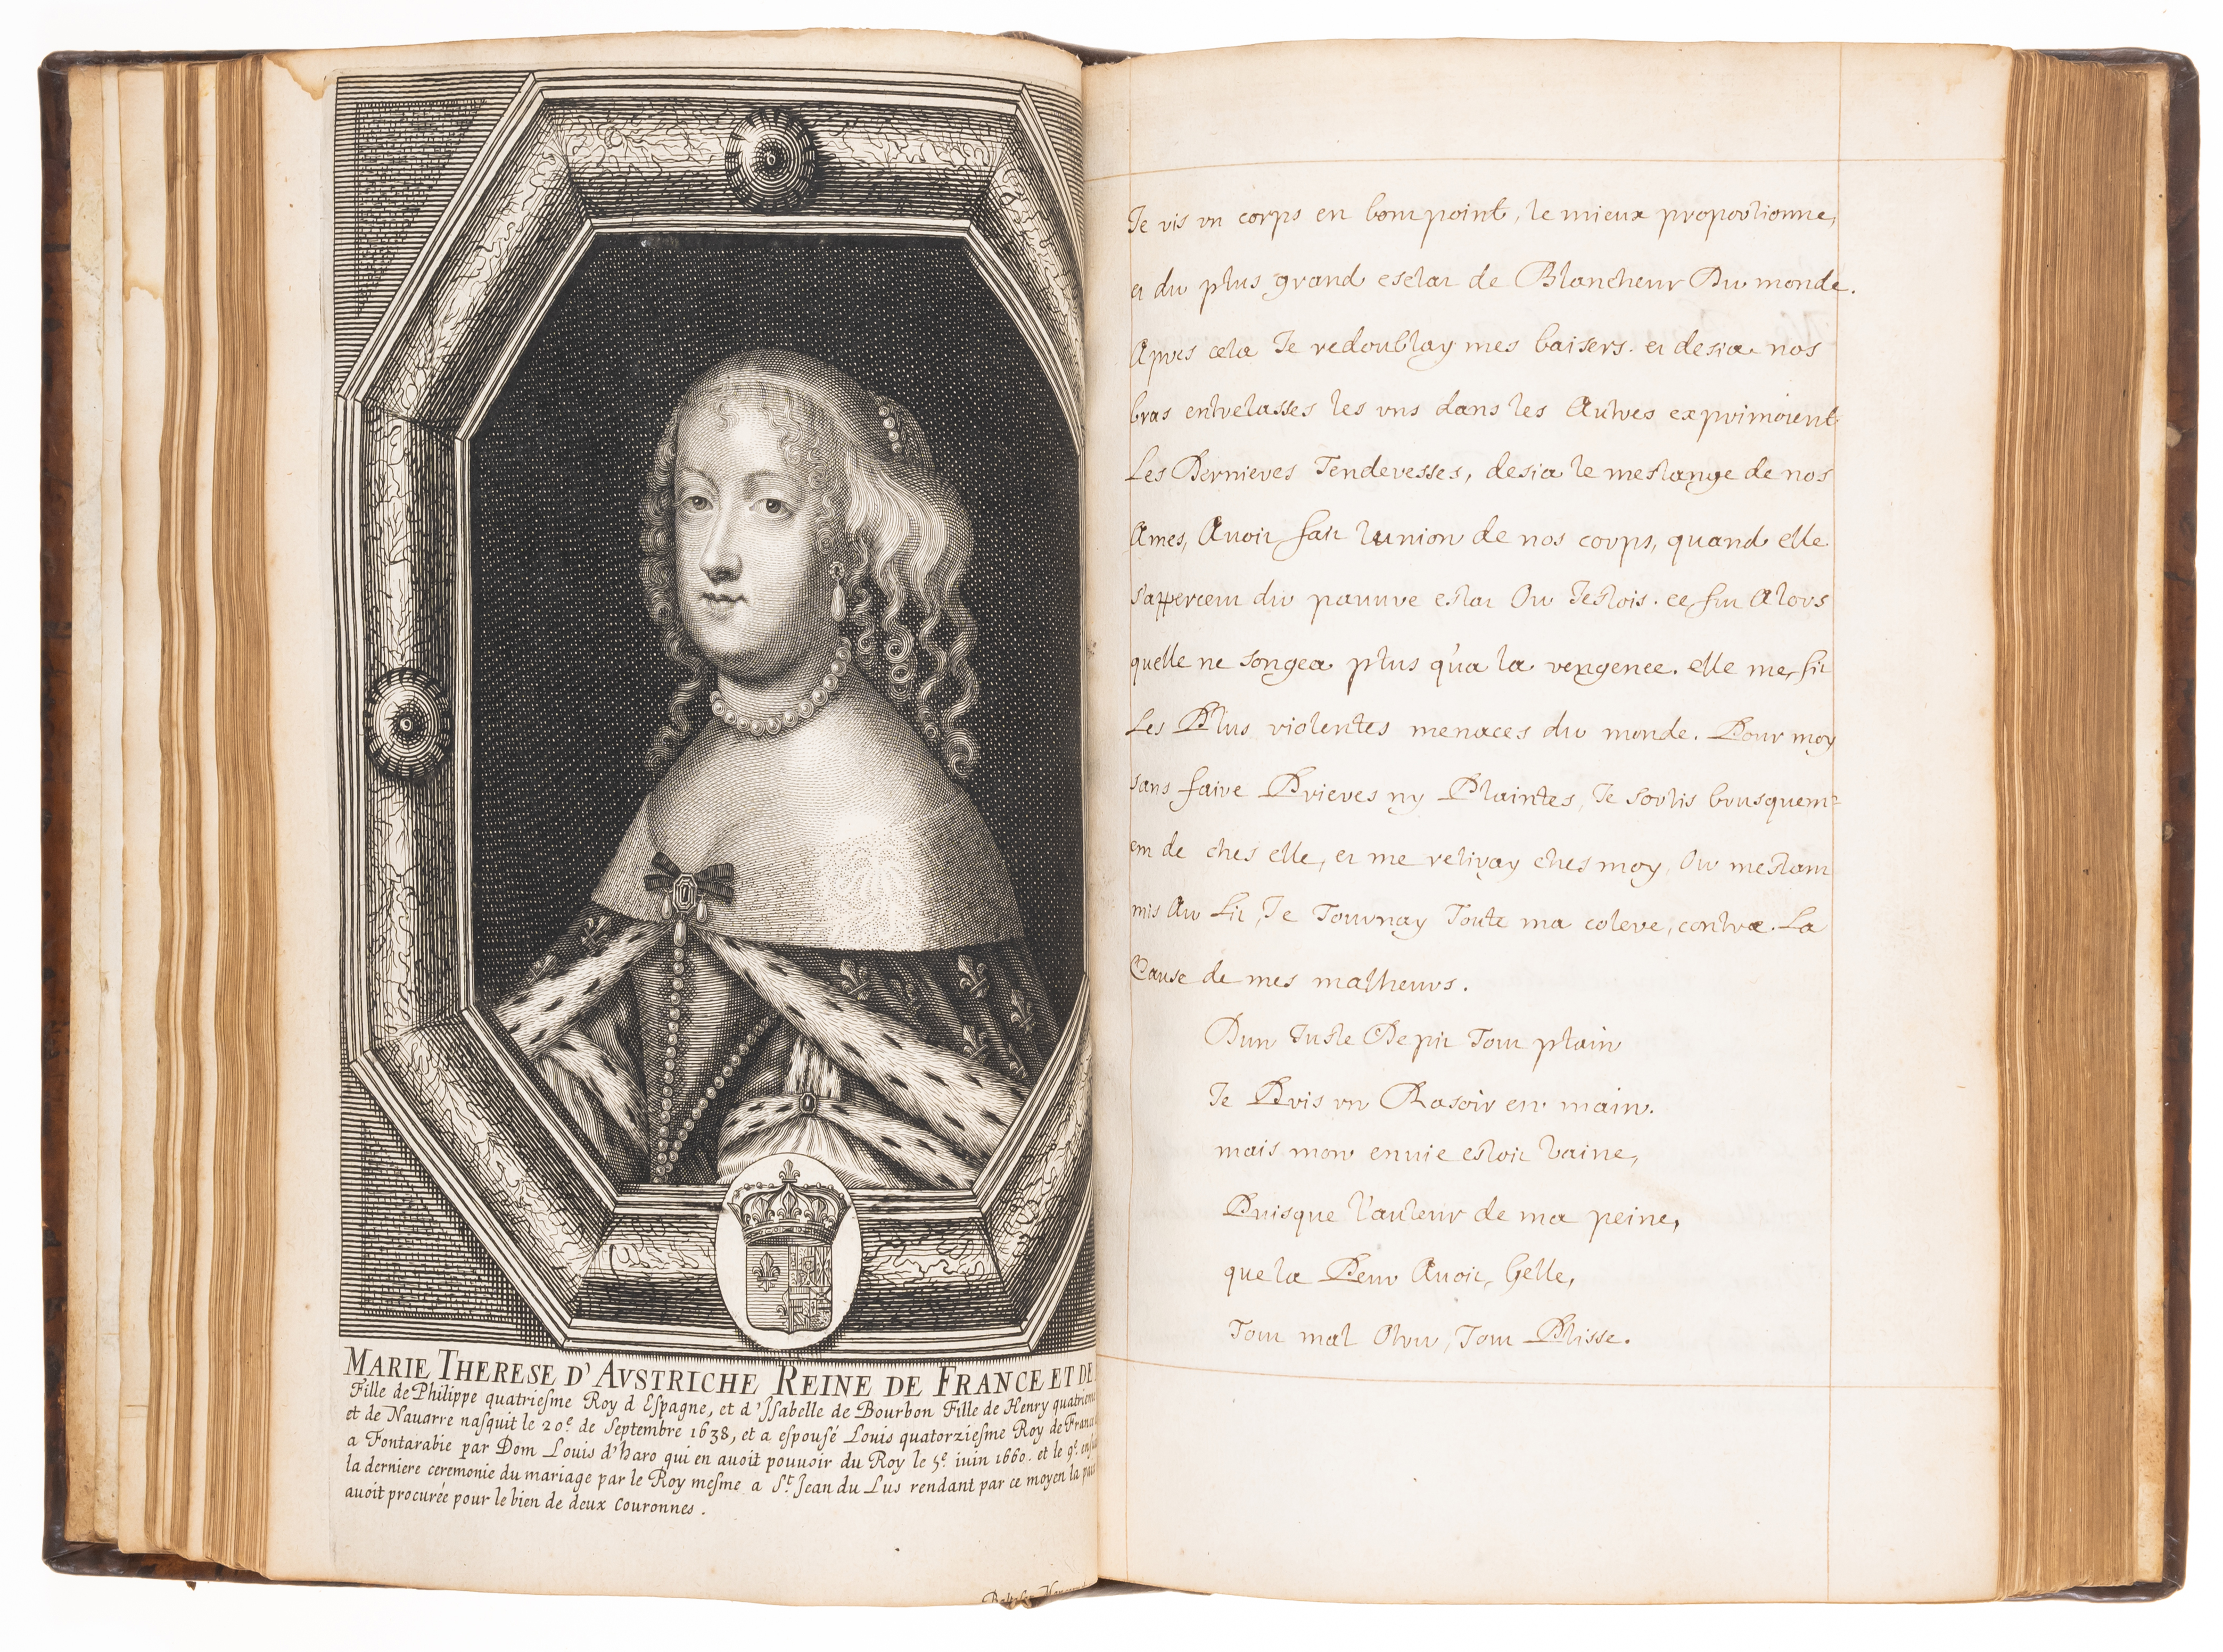 MARIE THERESE D' AVSTRICHE REINE DE FRANCE ET DE
Fille de Philippe quatriesme Roy d Espagne, et d'Isabelle de Bourbon Fille de Henry quatrieme
et de Nauarre nasquit le 20e. de Septembre 1638, et a espousé Louis quatorziesme Roy de France
a Fontarabie par Dom Louis d'haro qui en auoit pouuoir du Roy le 5e. iuin 1660. et le 9e.
la derniere ceremonie du mariage par le Roy mesme a St. Jean du Lus rendant par ce moyen la
auoit procurée pour le bien de deux Couronnes.
Je vis vn corps en bompoint, le mieux proportionne,
et du plus grand esclat de Blancheur Du monde.
Apres cela Je redoublay mes baisers. et desia nos
bras entrelasses les vns dans les Autres exprimoient
Les Dernieres Tenderesses, desia le meslange de nos
Ames, Auoit fait lunion de nos corps, quand elle
s'appercent du pauure estat Ou Jestois. ce fut Alors
quelle ne songea plus qu'a la vengence. elle me fit
Les Plus violentes menaces du monde. Pour moy
sans faire Prieres ny Plaintes, Je sortis brusquem=
ent de ches elle, et me retiray ches moy, Ou mestant
mis Au Lit, Je Tournay Toute ma colere, contre La
Cause de mes malheurs.
Dun Juste Depit Tout plain
Je Pris vn Rasoir en main.
mais mon enuie estoit vaine,
Puisque l'auteur de ma peine,
que la Peur Auoit, Gelle,
Tout mal Tout Plisse.